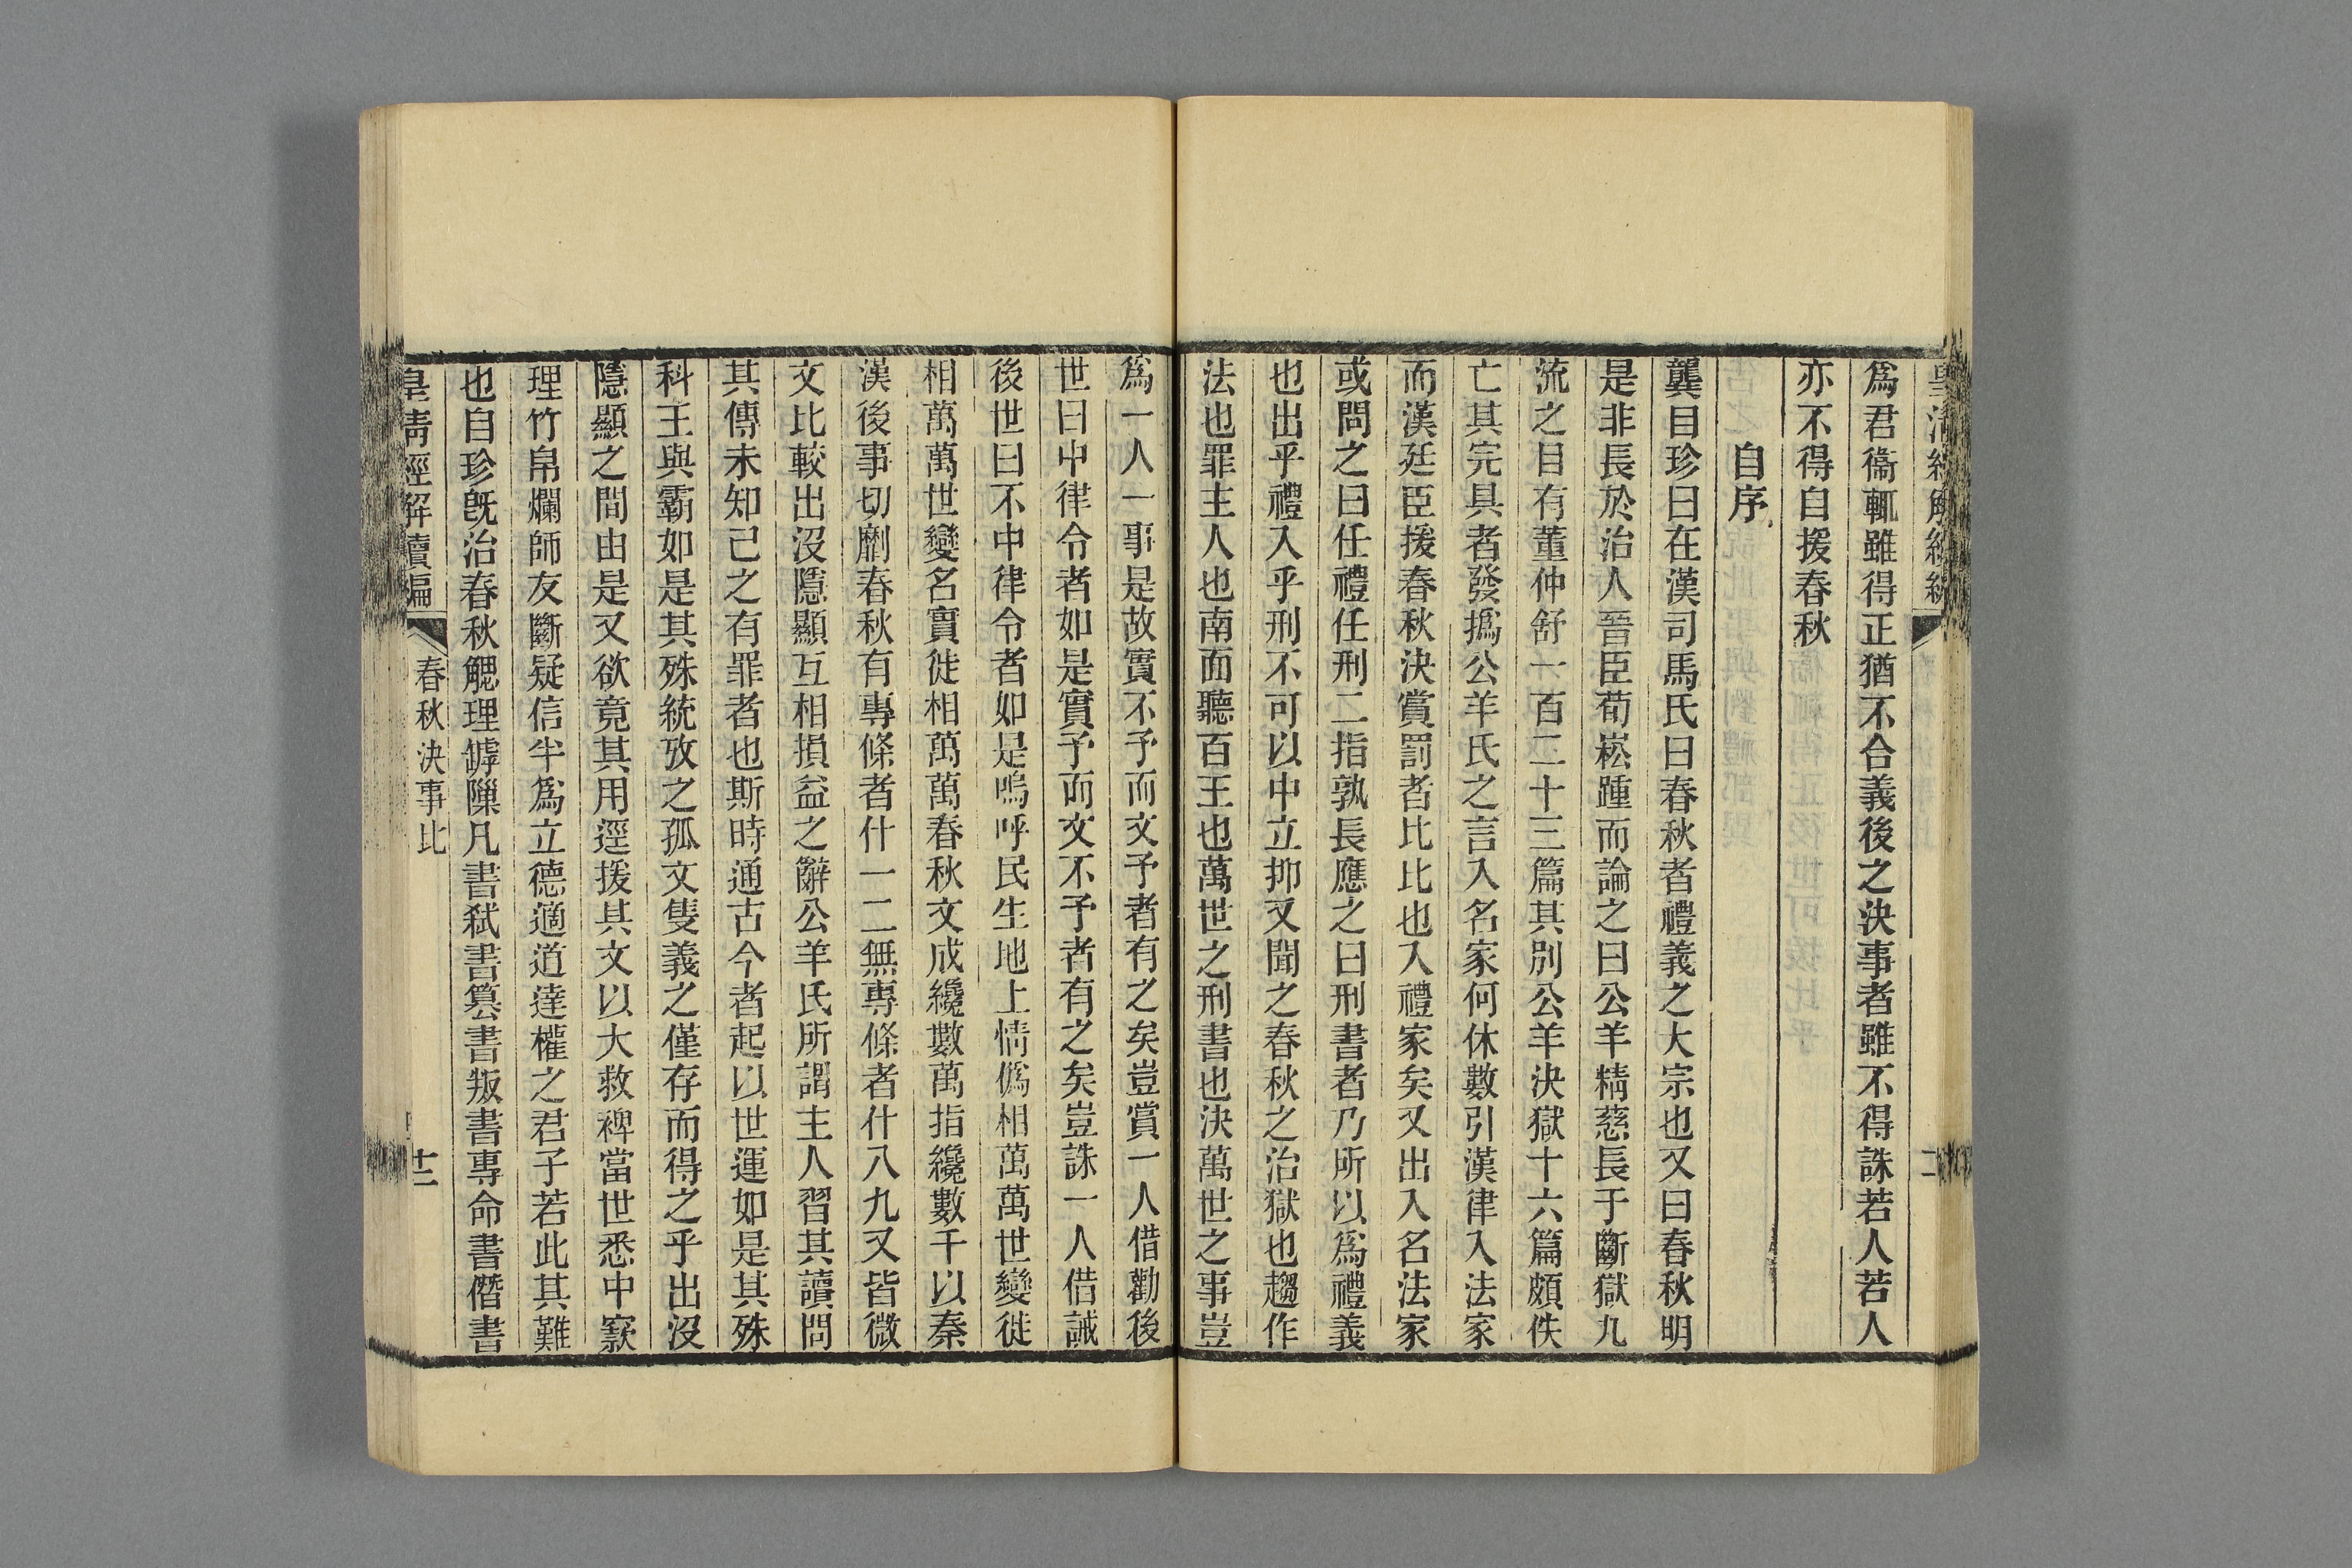 爲君衞輒雖得正猶不合義後之決事者雖不得誅若人若人
亦不得自援春秋
自序
龔自珍曰在漢司馬氏曰春秋者禮義之大宗也又曰春秋明
是非長於治人晉臣荀崧踵而論之曰公羊精慈長于斷獄九
流之目有董仲舒一百二十三篇其別公羊決獄十六篇頗佚
亡其完具者發撝公羊氏之言入名家何休數引漢律入法家
而漢廷臣援春秋決賞罰者比比也入禮家矣又出入名法家
或問之曰任禮任刑二指孰長應之曰刑書者乃所以爲禮義
也出乎禮入乎刑不可以中立抑又聞之春秋之治獄也趨作
法也罪主人也南面聽百王也萬世之刑書也決萬世之事豈
爲一人一事是故實不予而文予者有之矣豈賞一人借勸後
世曰中律令者如是實予而文不予者有之矣豈誅一人借誡
後世曰不中律令者如是嗚呼民生地上情僞相萬萬世變徙
相萬萬世變名實徙相萬萬春秋文成纔數萬指纔數千以秦
漢後事切劘春秋有專條者什一二無專條者什八九又皆微
文比較出沒隱顯互相損益之辭公羊氏所謂主人習其讀問
其傳未知己之有罪者也斯時通古今者起以世運如是其殊
科王與霸如是其殊統攷之孤文隻義之僅存而得之乎出沒
隱顯之間由是又欲竟其用逕援其文以大救裨當世悉中窾
理竹帛爛師友斷疑信半爲立德適道達權之君子若此其難
也自珍旣治春秋䚡理罅隟凡書弒書篡書叛書專命書僭書
皇淸經解續編
春秋決事比
十二